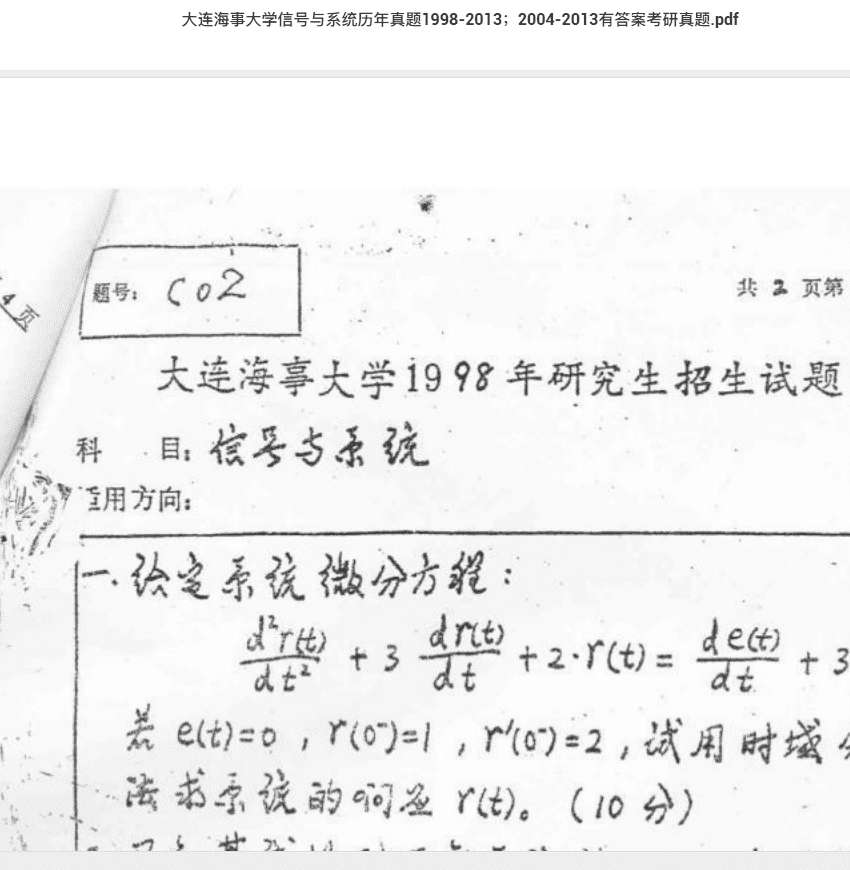 大连海事大学信号与系统历年真题1998-2013；2004-2013有答案考研真题.pdf
4页
题号：C02
共 2 页第
大连海事大学1998年研究生招生试题
科 目：信号与系统
适用方向：
一.给定系统微分方程：
d²r(t)/dt² + 3 dr(t)/dt + 2·r(t) = de(t)/dt + 3
若 e(t)=0，r(0⁻)=1，r′(0⁻)=2，试用时域
法求系统的响应 r(t)。(10分)